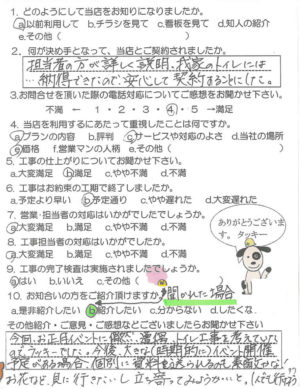 1. どのようにして当店をお知りになりましたか。
a.以前利用して b.チラシを見て c.看板を見て d.知人の紹介
e.その他（ ）
2. 何が決め手となって、当店とご契約されましたか。
担当者の方が詳しく説明、我家のトイレには
納得できたので安心して契約することにした。
3.お問合せを頂いた際の電話対応についてご感想をお聞かせ下さい。
不満 ← 1・2・3・4・5 →満足
4. 当店を利用するにあたって重視したことは何ですか。
a.プランの内容 b.評判 c.サービスや対応のよさ d.当社の場所
e.価格 f.営業マンの人柄 e.その他（ ）
5. 工事の仕上がりについてお聞かせ下さい。
a.大変満足 b.満足 c.やや不満 d.不満
6. 工事はお約束の工期で終了しましたか。
a.予定より早い b.予定通り c.やや遅れた d.大変遅れた
7. 営業・担当者の対応はいかがでしたでしょうか。
a.大変満足 b.満足 c.やや不満 d.不満
8. 工事担当者の対応はいかがでしたか。
a.大変満足 b.満足 c.やや不満 d.不満
ありがとうございます。タッキー
9. 工事の完了検査は実施されましたでしょうか。
a.はい b.いいえ c.その他（ ）
10. お知合いの方をご紹介頂けますか。聞かれた場合
a.是非紹介したい b.紹介したい c.分からない d.したくない
その他紹介・ご意見・ご感想などございましたらお聞かせ下さい
今回、お正月イベントに偶然、遭偶、トイレ工事を考えていた
のでラッキーでした。今後、大きな（時期的に）イベント開催
予定がある場合、個別に資料を送られるのも素敵かな！
お花など見に行きたい、し立ち寄ってみようかしと、